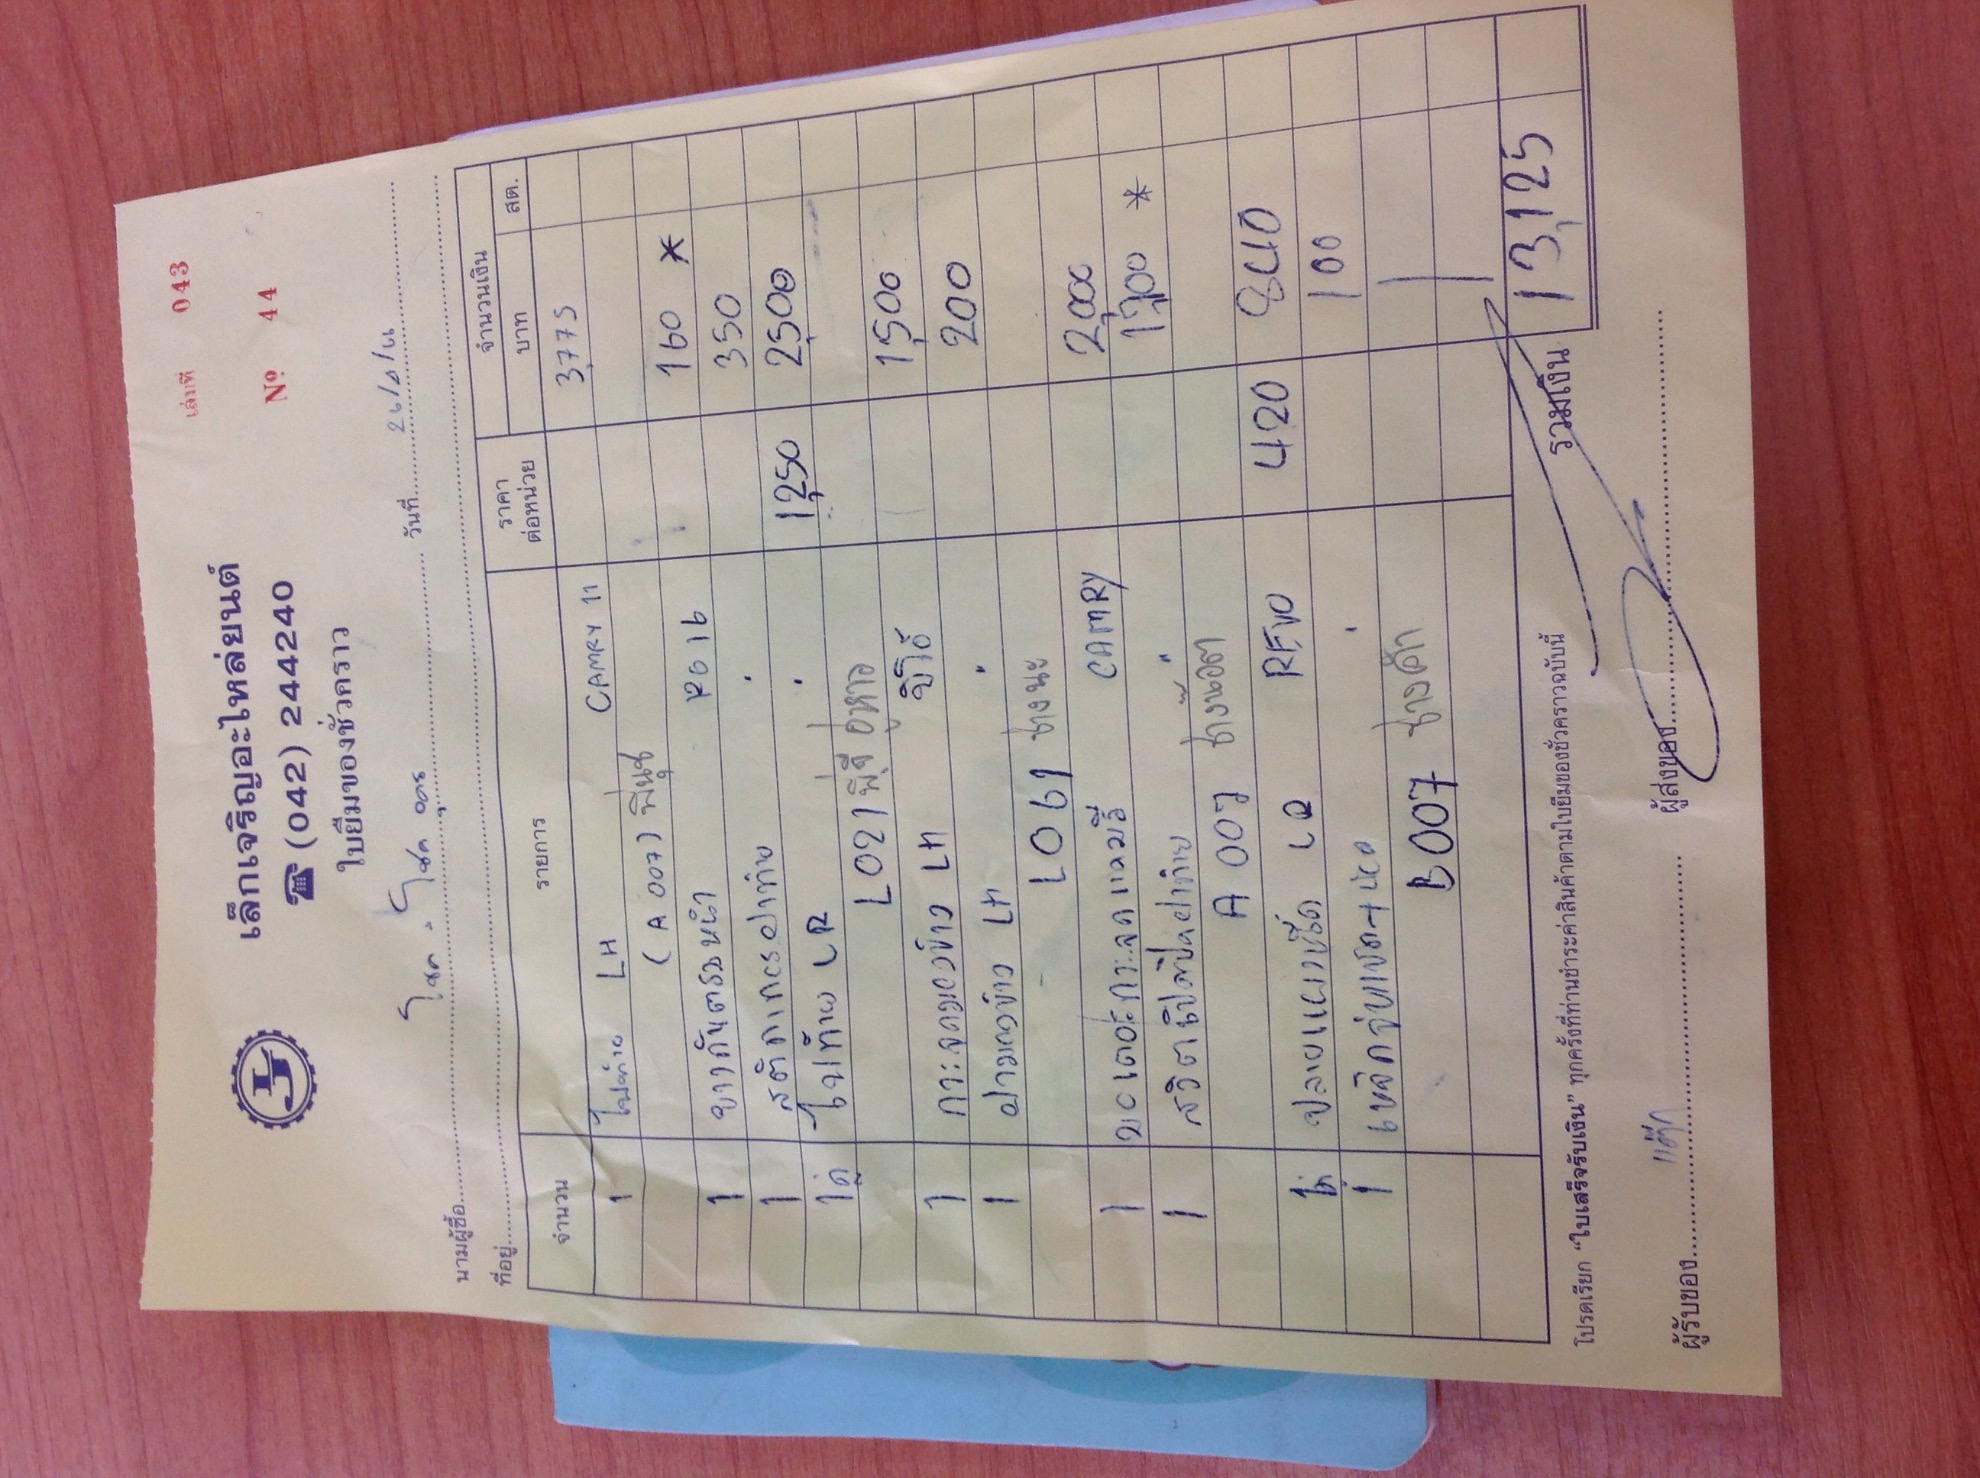 เล่มที่ 043
เล็กเจริญอะไหล่ยนต์
☎ (042) 244240
№ 44
ใบยืมของชั่วคราว
นามผู้ซื้อ วันที่
ที่อยู่
จำนวน รายการ ราคาต่อหน่วย จำนวนเงิน
บาท สต.
1 ไฟท้าย LH CAMRY 11 3,775
(A 007) พี่นุช
1 R016 160 *
1 สติกเกอร์ฝาท้าย " 350
1คู่ ไฟท้าย LR " 1,250 2,500
L021 อู่
1 กระจกมองข้าง LH วีโก้ 1,500
1 ฝามองข้าง LH " 200
L061 ช่างนะ
1 มอเตอร์กระจก แคมรี่ CAMRY 2,000
1 " 1,700 *
A 007 ช่างน๊อต
LR REVO 420 840
1 " 100
B007 ช่างต้า
รวมเงิน 13,125
โปรดเรียก "ใบเสร็จรับเงิน" ทุกครั้งที่ท่านชำระค่าสินค้าตามใบยืมของชั่วคราวฉบับนี้
ผู้รับของ ผู้ส่งของ